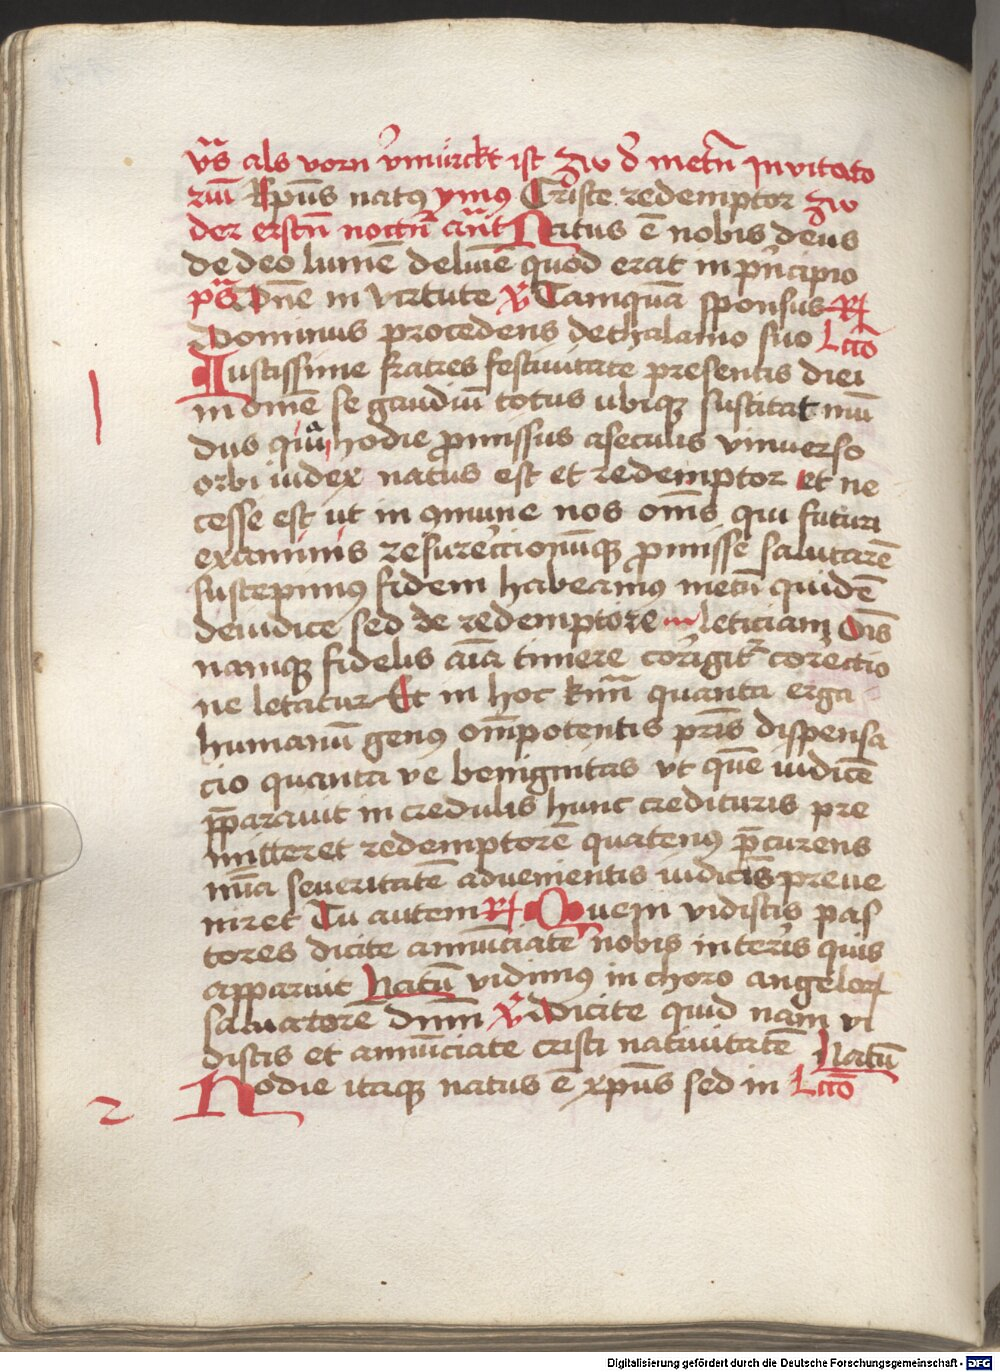 vs̄ als vorn v̓mürckt ist zw d̓ metn̄ Invitato
riū xp̄us natꝰ ymꝰ Criste redemptor zw
der erstn̄ noctn̄ ant̄ Natus ē nobis deus
de deo lumē de luīe quod erat in pͥncipio
ps̄ Dn̄e in virtute V̓ Tamquā sponsus R̷
Dominus procedens de thalamo suo Lcō
Iustissime fratres festiuitate presentis diei
in om̄e se gaudiū totus ubiqꝫ suscitat mū
dus quia hodie ꝓmissus a seculis vniuerso
orbi iudex natus est et redemptor et ne
cesse est ut in ꝯmune nos om̄s qui futuri
examinis resurectionūqꝫ ꝓmisse salutarē
suscepimꝰ fidem habeamꝰ metū quidē
de iudice sed de redemptore in leticiam Oīs
namqꝫ fidelis aīa timere corrigit̓ correctio
ne letatur Et in hoc krm̄ quanta erga
humanū genꝰ om̄potentis pr̄is dispensa
cio quanta ve benignitas vt quē iudicē
p̄parauit in credulis hunc credituris pre
mitteret redemptorē quatenꝰ p̄curens
mīa seueritatē aduenientis iudicis preue
niret Tu autem R̷ Quem vidistis pas
tores dicite annūciate nobis in terris quis
apparuit Natū vidimꝰ in choro angelorꝫ
saluatorē dn̄m V̓ Dicite quid nam vi
distis et annūciate cristi natiuitatē Natū
Hodie itaqꝫ natus ē xp̄us sed in Lcō
2
Digitalisierung gefördert durch die Deutsche Forschungsgemeinschaft - DFG